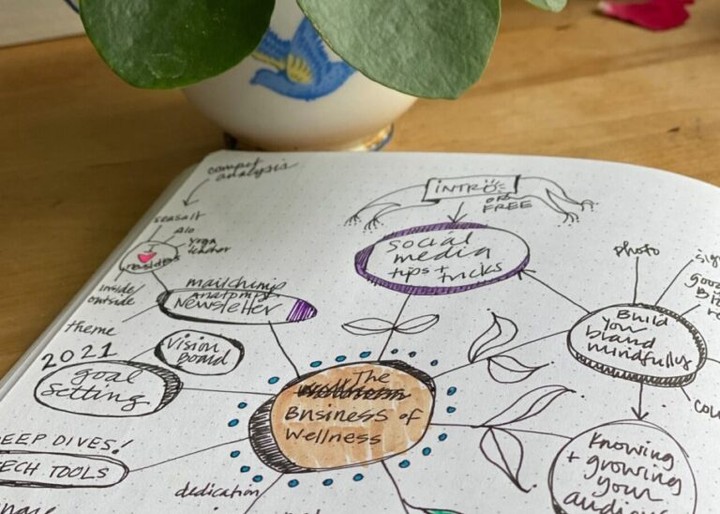 compet
analysis
seasalt
alo
yoga
inside/
outside
theme
mailchimp
Newsletter
INTRO
OR
FREE
social
media
tips + tricks
photo
Build
your
brand
mindfully
2021
goal
setting
Vision
Board
The
wellness
Business of
Wellness
EEP DIVES!
ECH TOOLS
dedication
Knowing
+ growing
your